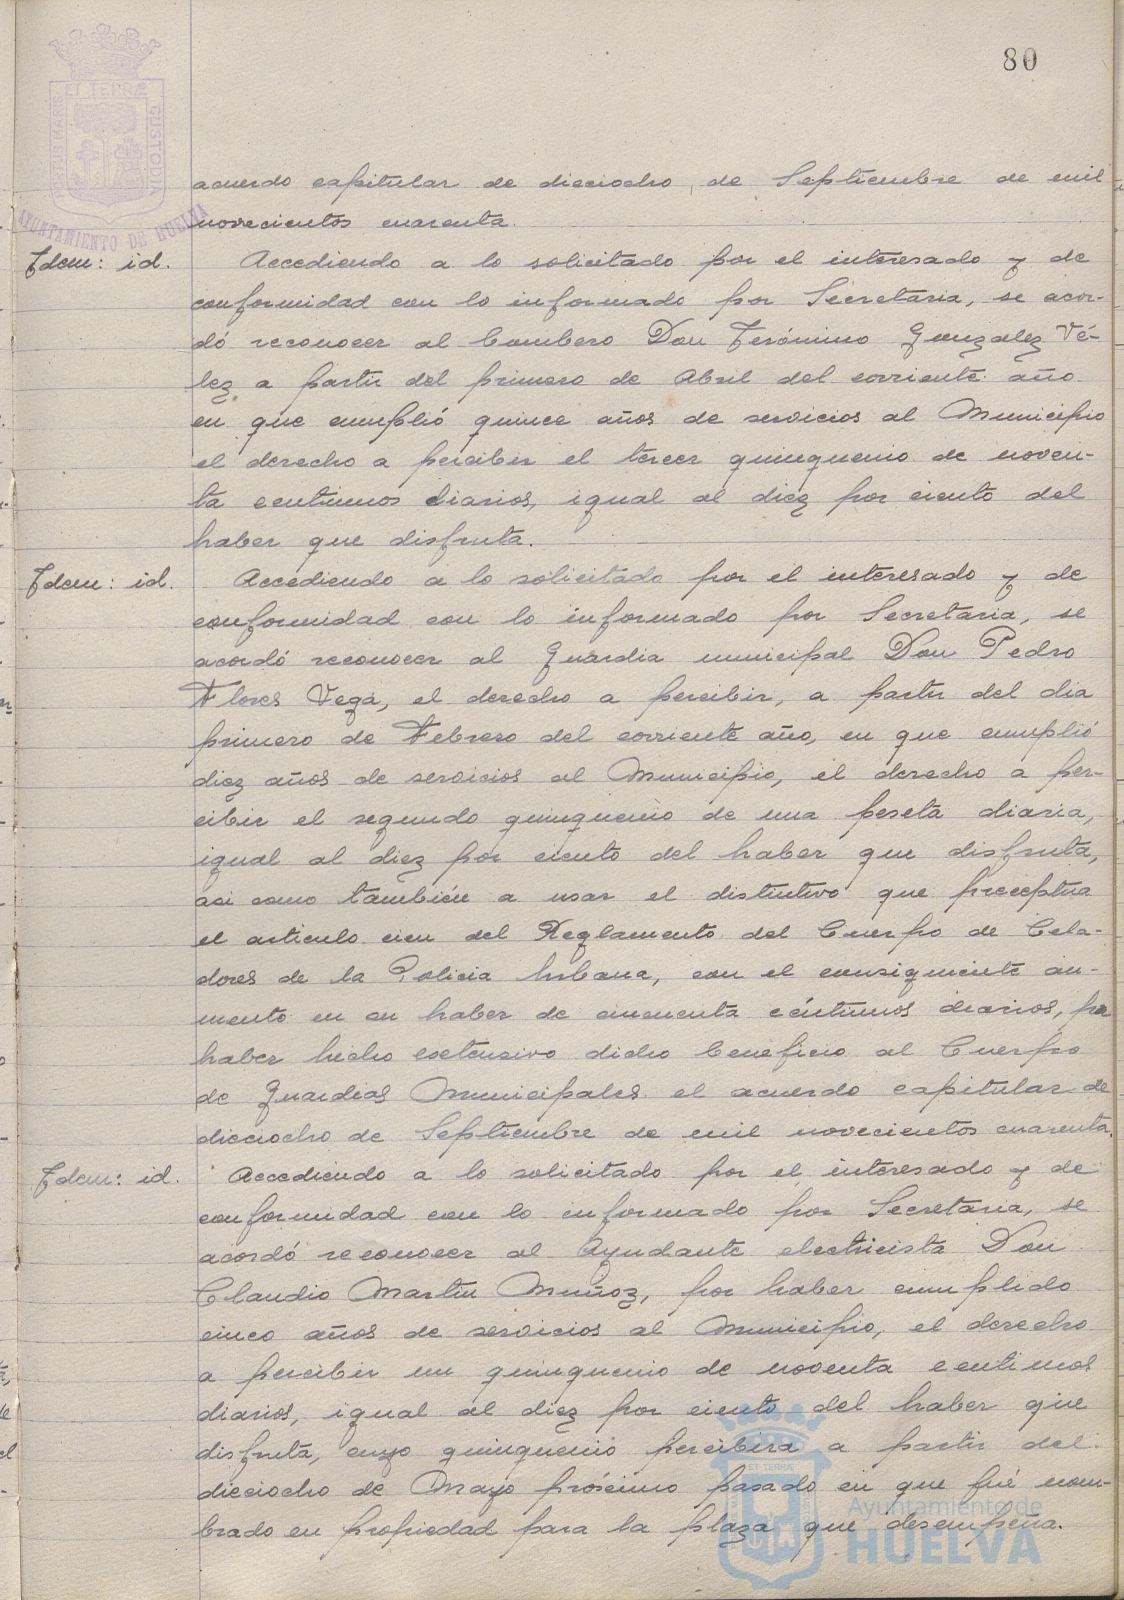 80
acuerdo capitular de dieciocho de Septiembre de mil
novecientos cuarenta.
Idem: id. Accediendo a lo solicitado por el interesado y de
conformidad con lo informado por Secretaria, se acor-
dó reconocer al bombero Don Jerónimo Gonzalez Vé-
lez a partir del primero de Abril del corriente año
en que cumplió quince años de servicios al Municipio
el derecho a percibir el tercer quinquenio de noven-
ta centimos diarios, igual al diez por ciento del
haber que disfruta.
Idem: id. Accediendo a lo solicitado por el interesado y de
conformidad con lo informado por Secretaria, se
acordó reconocer al Guardia municipal Don Pedro
Flores Vega, el derecho a percibir, a partir del dia
primero de Febrero del corriente año, en que cumplió
diez años de servicios al Municipio, el derecho a per-
cibir el segundo quinquenio de una peseta diaria,
igual al diez por ciento del haber que disfruta,
asi como también a usar el distintivo que preceptua
el articulo cien del Reglamento del Cuerpo de Cela-
dores de la Policia Urbana, con el consiguiente au-
mento en su haber de cincuenta céntimos diarios, por
haber hecho extensivo dicho beneficio al Cuerpo
de Guardias Municipales el acuerdo capitular de
dieciocho de Septiembre de mil novecientos cuarenta.
Idem: id. Accediendo a lo solicitado por el interesado y de
conformidad con lo informado por Secretaria, se
acordó reconocer al Ayudante electricista Don
Claudio Martin Muñoz, por haber cumplido
cinco años de servicios al Municipio, el derecho
a percibir un quinquenio de noventa centimos
diarios, igual al diez por ciento del haber que
disfruta, cuyo quinquenio percibirá a partir del
dieciocho de Mayo próximo pasado en que fué nom-
brado en propiedad para la plaza que desempeña.
ET TERRÆ
CUSTODIA
AYUNTAMIENTO DE HUELVA
Ayuntamiento de
HUELVA